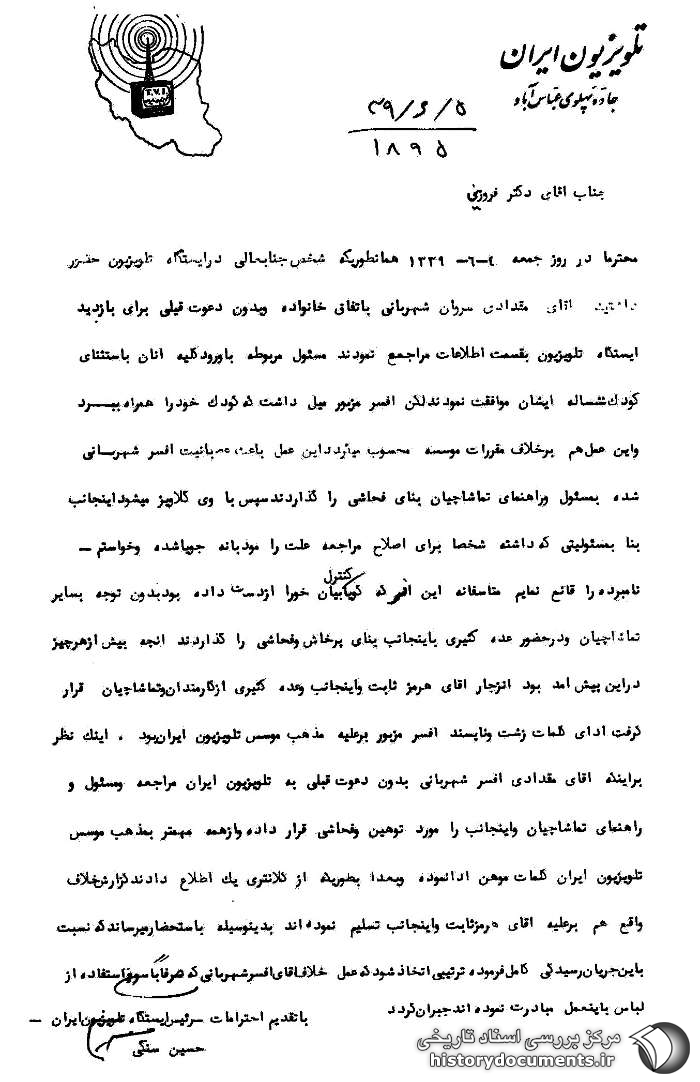 تلویزیون ایران
جاده پهلوی عباس آباد
T.V.I
۳۹/۶/۵
۱۸۹۵
جناب اقای دکتر فروزین
محترما در روز جمعه ٤-٦- ۱۳۳۹ همانطوریکه شخص جنابعالی درایستگاه تلویزیون حضور
داشتید اقای مقدادی سروان شهربانی باتفاق خانواده وبدون دعوت قبلی برای بازدید
ایستگاه تلویزیون بقسمت اطلاعات مراجع نمودند مسئول مربوطه باورودکلیه انان باستثنای
کودک ششساله ایشان موافقت نمودندلکن افسر مزبور میل داشت که کودک خودرا همراه ببرد
واین عمل هم برخلاف مقررات موسسه محسوب میگردداین عمل باعث عصبانیت افسر شهربانی
شده بمسئول وراهنمای تماشاچیان بنای فحاشی را گذاردندسپس با وی گلاویز میشوداینجانب
بنا بمسئولیتی که داشته شخصا برای اصلاح مراجعه علت را مودبانه جویاشده وخواستم –
نامبرده را قانع نمایم متاسفانه این افسر که گویا کنترل خورا ازدست داده بودبدون توجه بسایر
تماشاچیان ودرحضور عده کثیری باینجانب بنای پرخاش وفحاشی را گذاردند انچه بیش ازهرچیز
دراین پیش امد بود انزجار اقای هرمز ثابت واینجانب وعده کثیری ازکارمندان وتماشاچیان قرار
گرفت ادای کلمات زشت وناپسند افسر مزبور برعلیه مذهب موسس تلویزیون ایران بود ، اینک نظر
براینکه اقای مقدادی افسر شهربانی بدون دعوت قبلی به تلویزیون ایران مراجعه ومسئول و
راهنمای تماشاچیان واینجانب را مورد توهین وفحاشی قرار داده وازهمه مهمتر بمذهب موسس
تلویزیون ایران کلمات موهن ادانموده وبعدا بطوریکه از کلانتری یک اطلاع دادندگزارش خلاف
واقع هم برعلیه اقای هرمزثابت واینجانب تسلیم نموده اند بدینوسیله باستحضارمیرساندکه نسبت
باین جریان رسیدگی کامل فرموده ترتیبی اتخاذ شود که عمل خلاف اقای افسرشهربانی که صرفا باسوء استفاده از
لباس باینعمل مبادرت نموده اندجبران گردد
باتقدیم احترامات سرئیس ایستگاه تلویزیون ایران –
حسین سنگی
مرکز بررسی اسناد تاریخی
historydocuments.ir